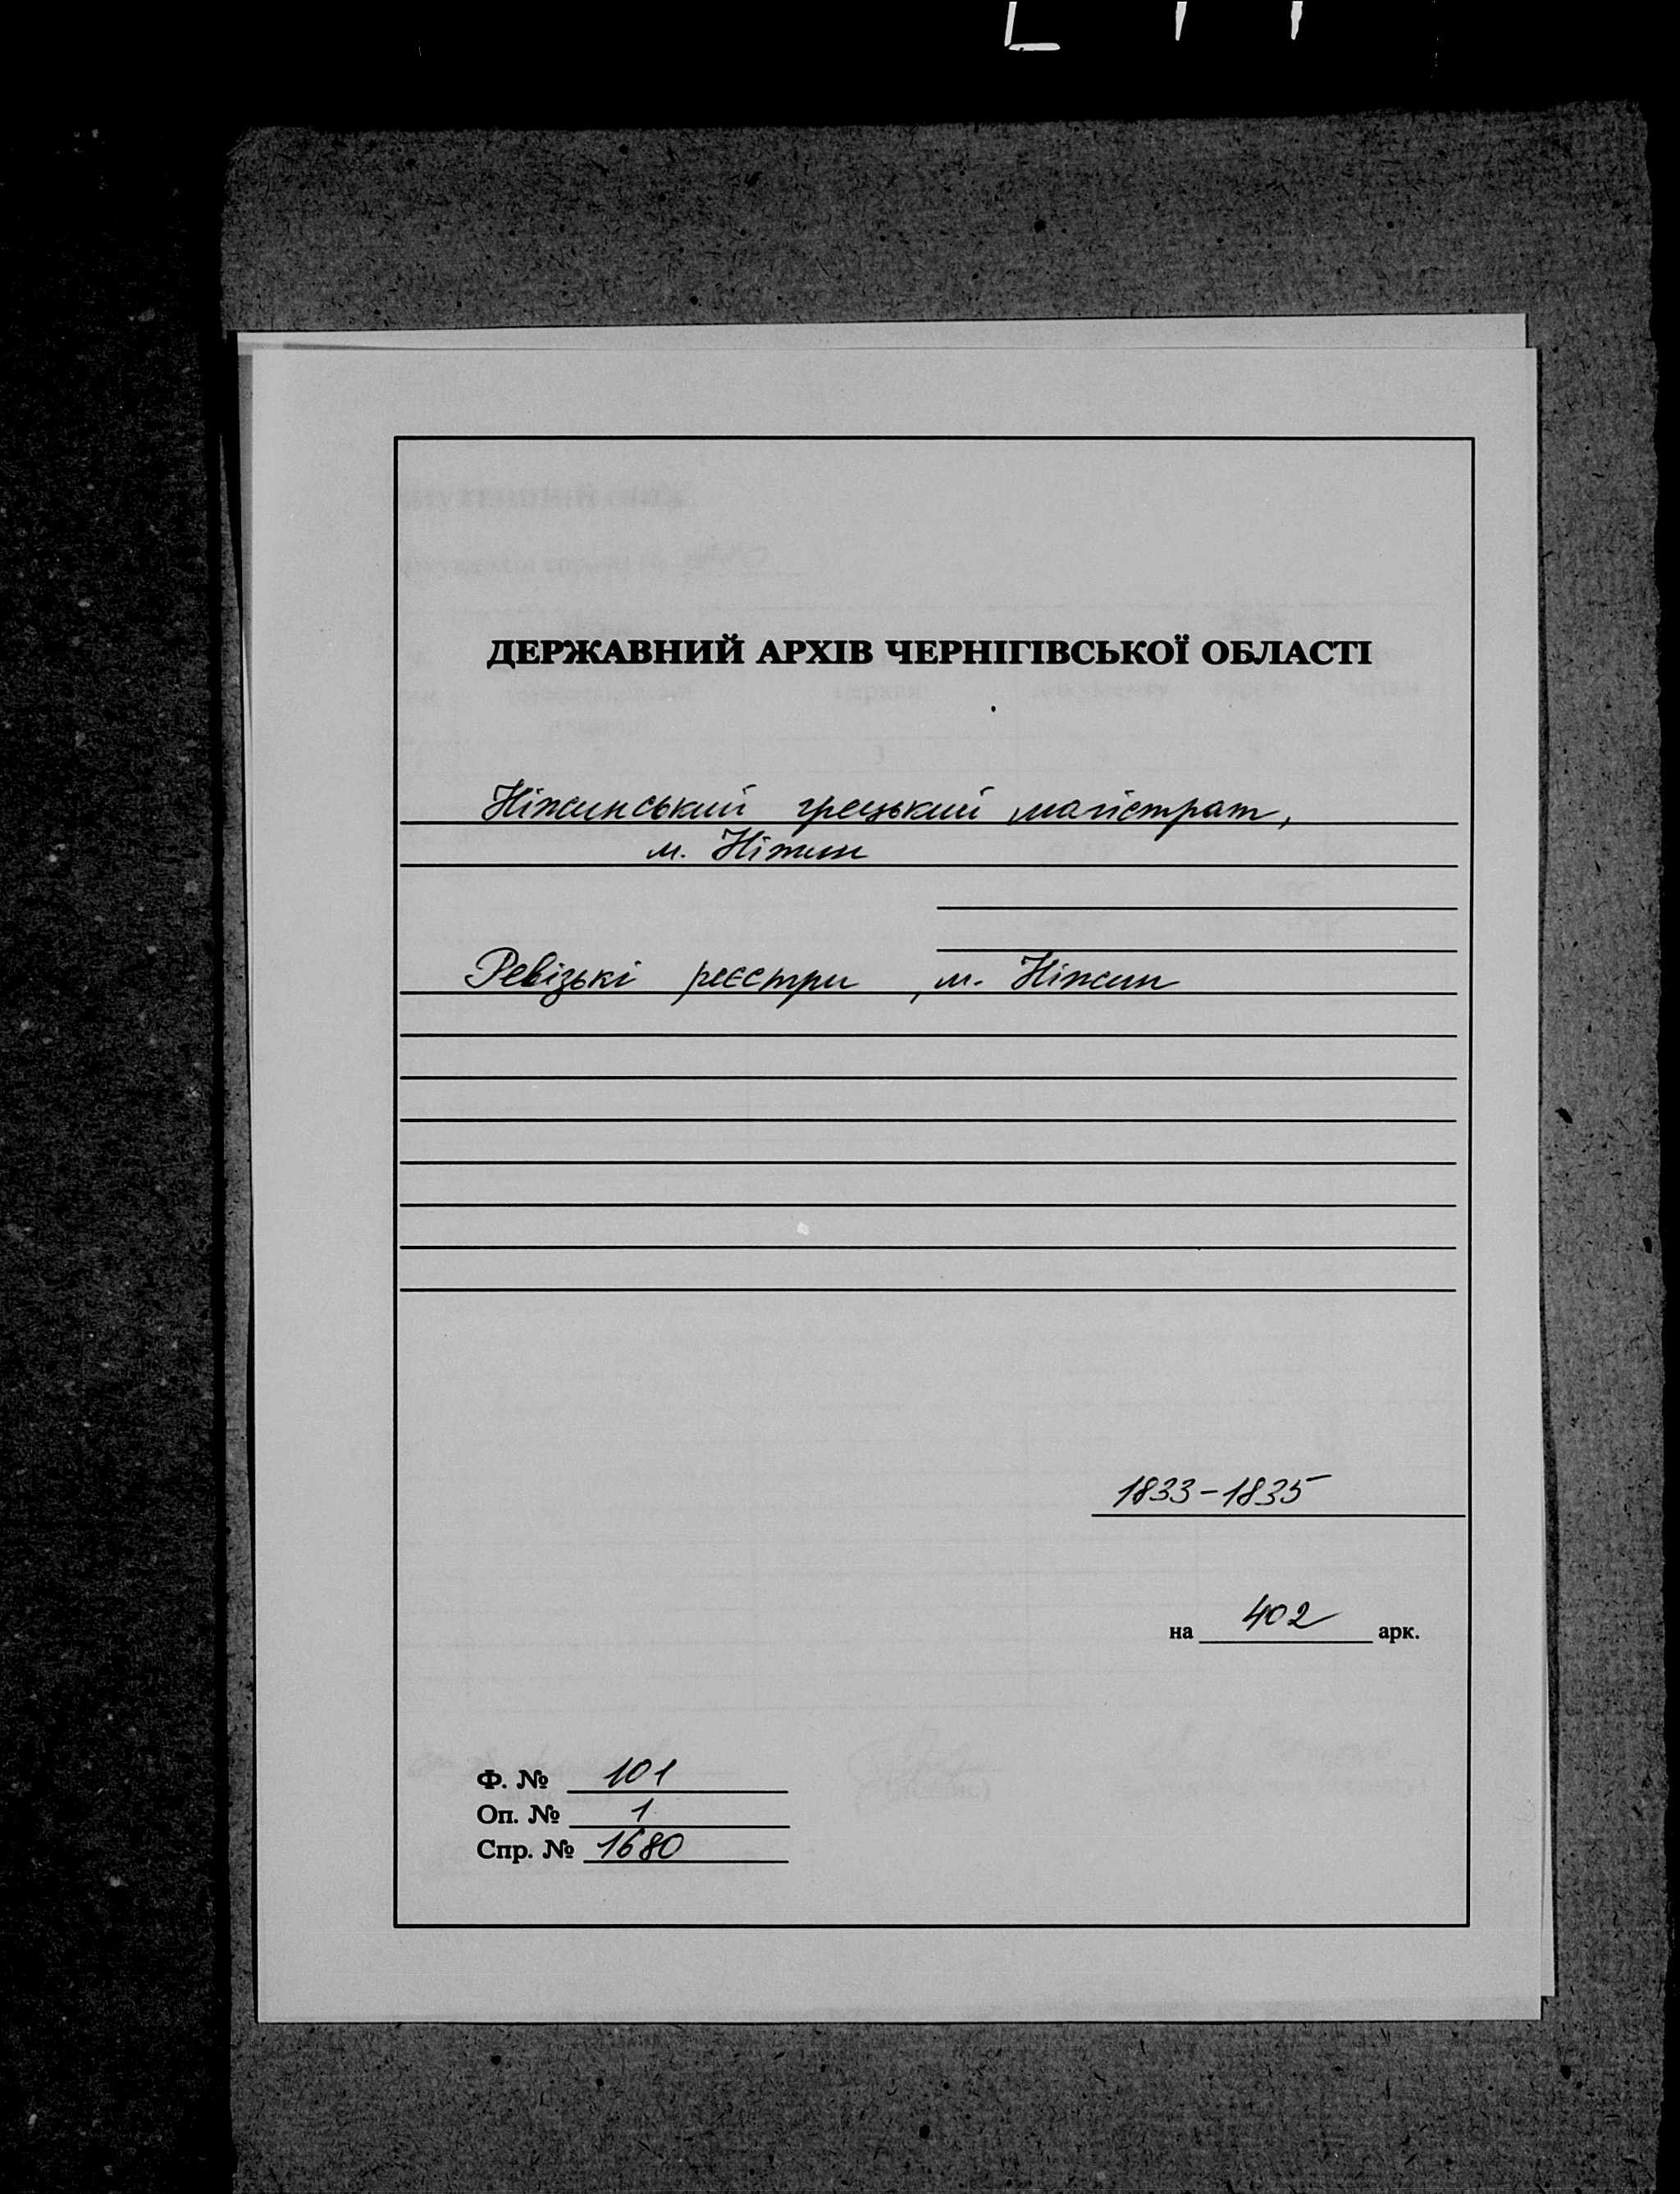 ДЕРЖАВНИЙ АРХІВ ЧЕРНІГІВСЬКОЇ ОБЛАСТІ
Ніжинський грецький магістрат,
м. Ніжин
Ревізькі реєстри, м. Ніжин
1833-1835
на 402 арк.
Ф. № 101
Оп. № 1
Спр. № 1680